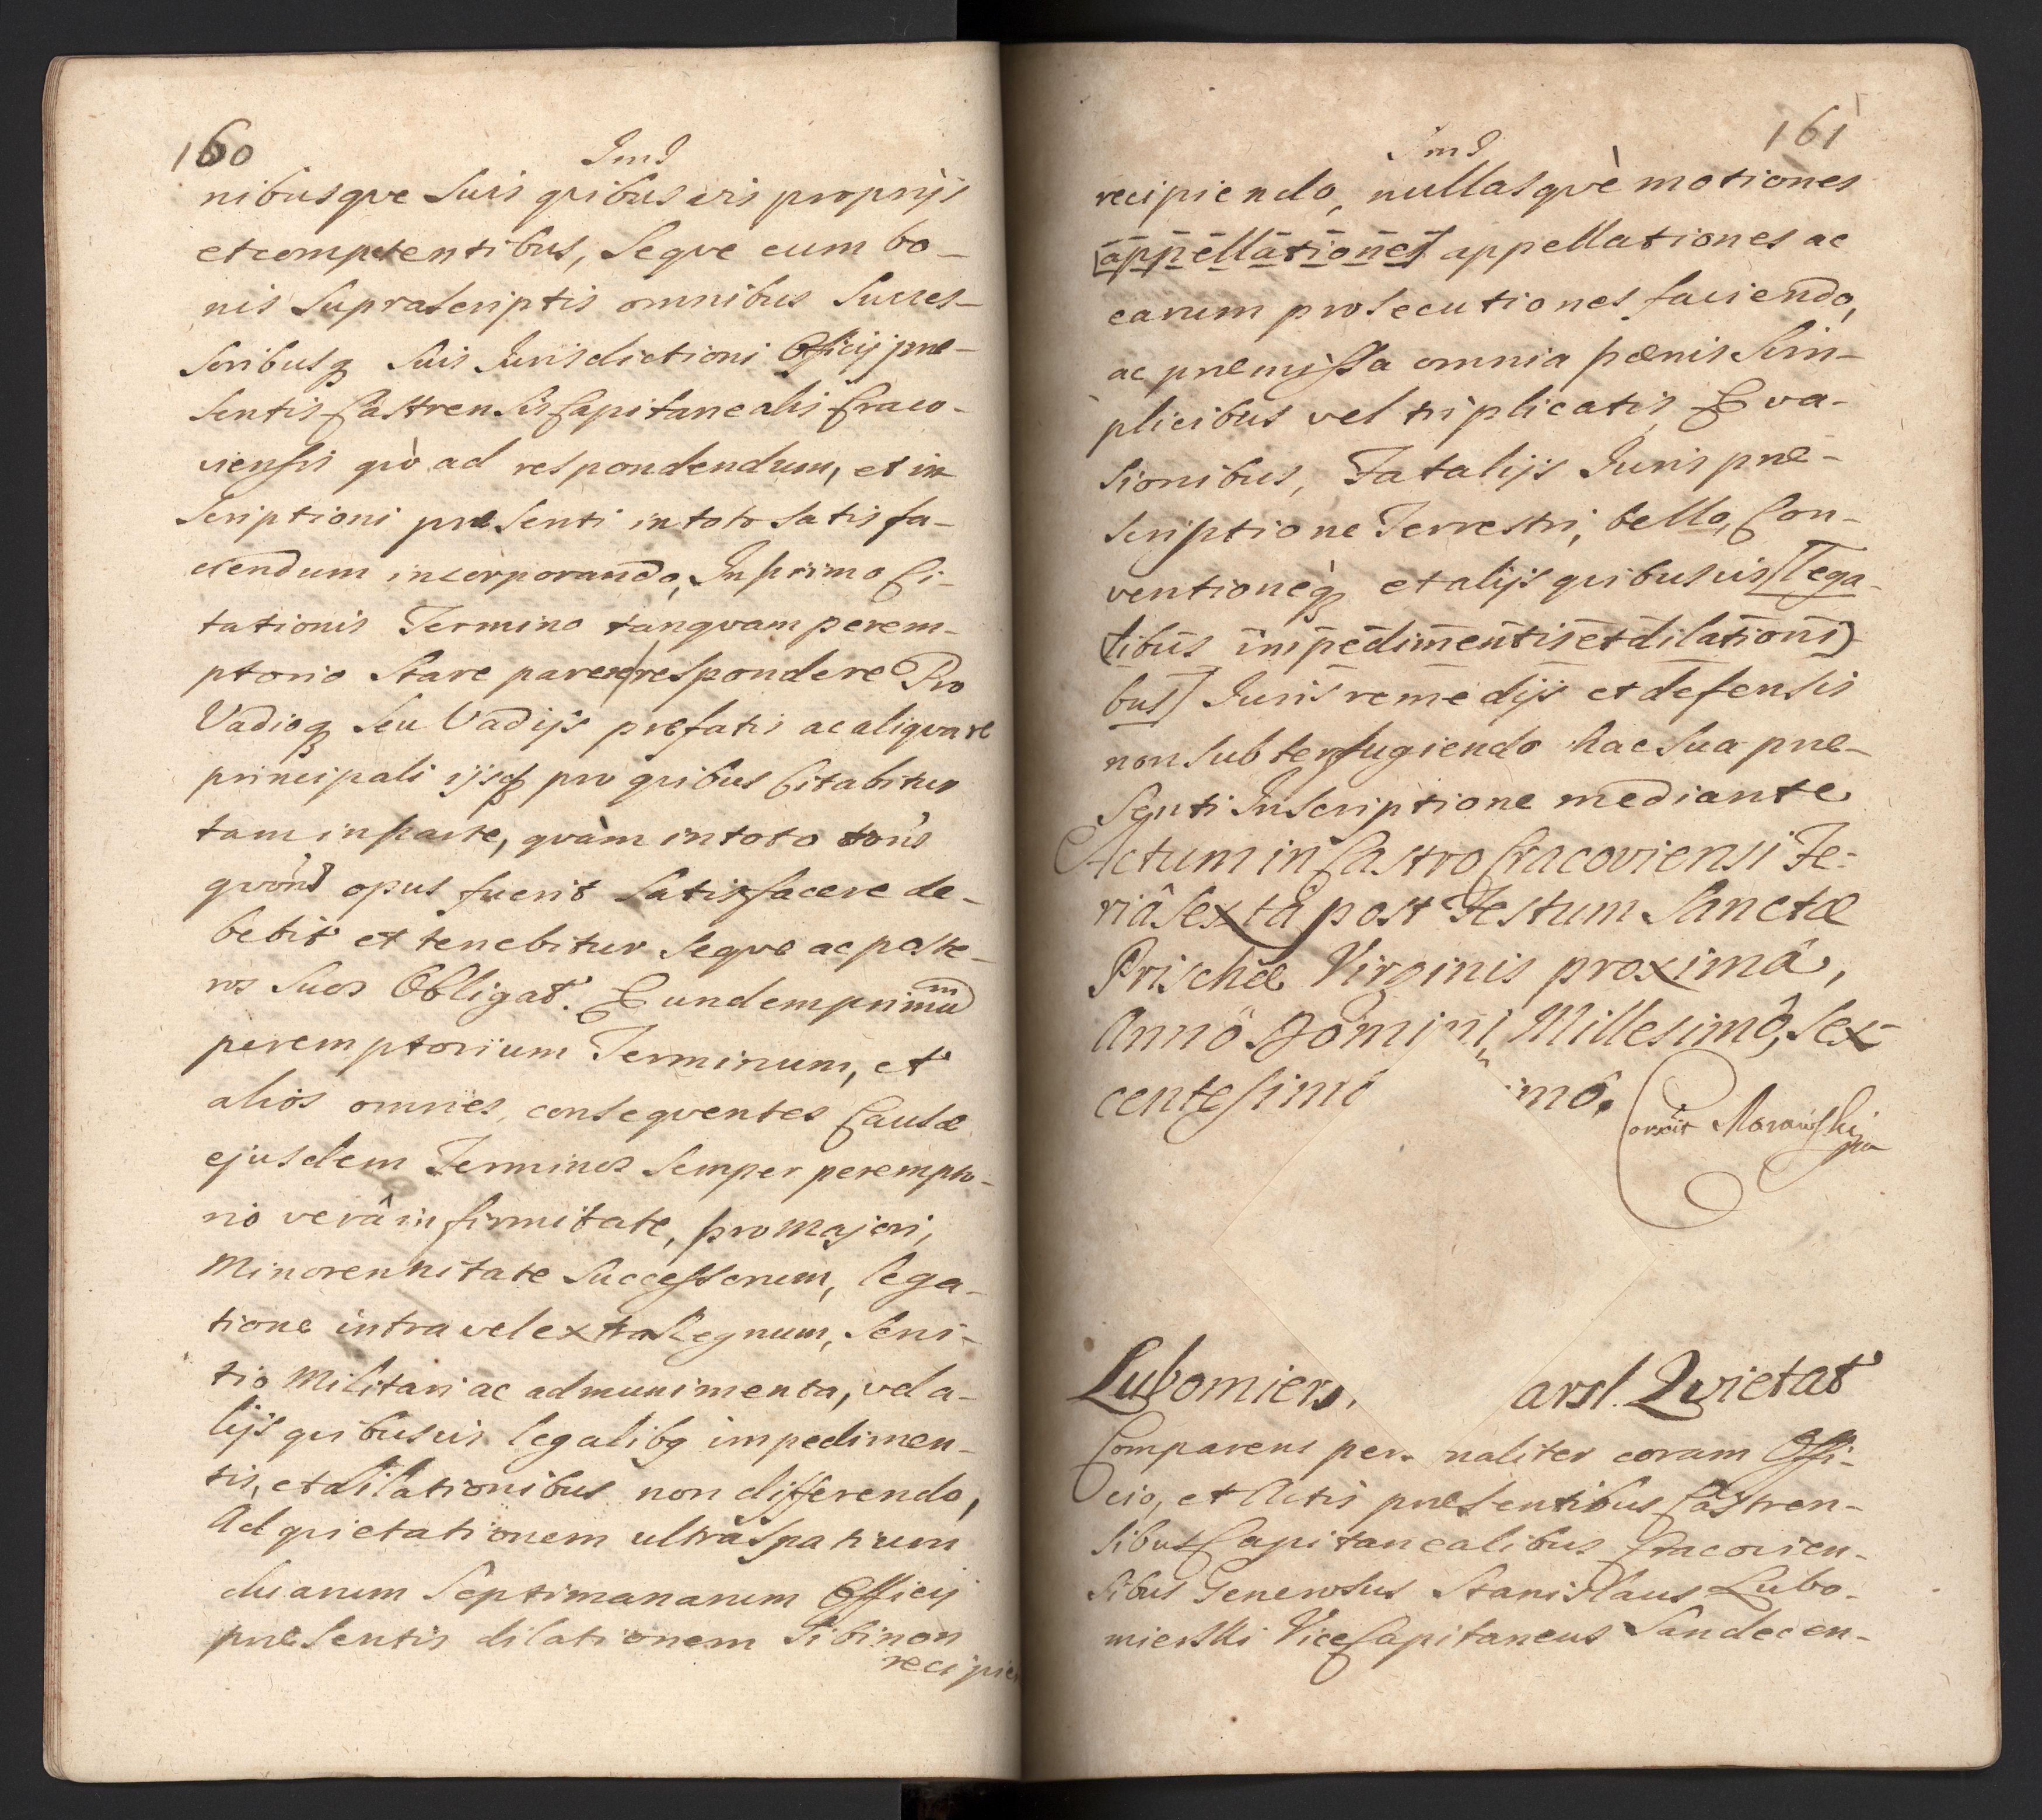 160
Ind
nibusque Suis quibusvis proprijs
et competentibus, Seque cum bo-
nis Suprascriptis omnibus Succes-
soribusq Suis Jurisdictioni Officij præ-
sentis Castrensis Capitanealis Craco-
viensis quò ad respondendum, et in
scriptioni præsenti in toto satisfa-
ciendum incorporando, In primo Ci-
tationis Termino tanquam perem-
ptorio Stare parere respondere Pro
Vadioq seu Vadijs præfatis ac aliqua re
principali ijsq pro quibus Citabitur
tam in parte, quàm in toto
opus fuerit Satisfacere de-
bebit et tenebitur Seque ac poste-
ros Suos Obligat. Eundem primu
peremptorium Terminum, et
alios omnes consequentes Causæ
ejusdem Terminos Semper perempto-
rio verâ infirmitate, pro majori,
Minorennitate Successorum, lega-
tione intra vel extra Regnum, Servi-
tio Militari ac ad munimenta, vel a-
lijs quibusvis legalibq impedimen-
tis, et dilationibus non differendo,
Ad quietationem ultra spatium
duarum Septimanarum Officij
præsentis dilationem Sibi non
recipie
161
Ind
recipiendo, nullasquè motiones
[appellationes] appellationes ac
earum prosecutiones faciendo,
ac præmissa omnia pœnis Sim-
plicibus vel triplicatis, Eva-
sionibus, Fatalijs Juris præ-
scriptione Terrestri, bello, Con-
ventioneq et alijs quibusvis [Lega-
libus impedimentis et dilationi)
bus] Juris remedijs et defensis
non subterfugiendo hac Sua præ-
senti Inscriptione mediante
Actum in Castro Cracoviensi Fe-
riâ Sextâ post Festum Sanctæ
Prischæ Virginis proximâ,
Annô Domini, Millesimô, Sex-
centesimô imô.
Corrit Morawski
mpa
Lubomiers. arsl. Quietat
Comparens per naliter coram Offi-
cio, et Actis præsentibus Castren-
sibus Capitanealibus Cracovien-
sibus Generosus Stanislaus Lubo-
mierski ViceCapitaneus Sandecen-